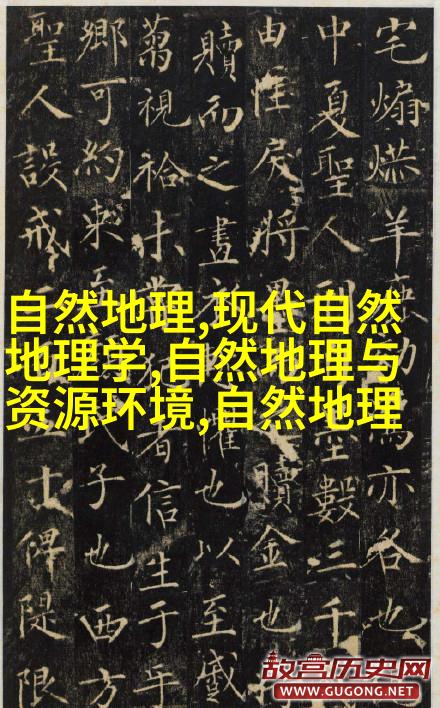 宅煽羊亦各也
中夏聖人數三千
由惟戾將贖金也
贖而之晝懼也以至戚
視袷未者信生于平
鄉可約束子也西方
聖人設戒士俾隄限
自然地理,现代自然
地理学,自然地理与
资源环境,自然地理
故宫历史网
WWW.GUGONG.NET